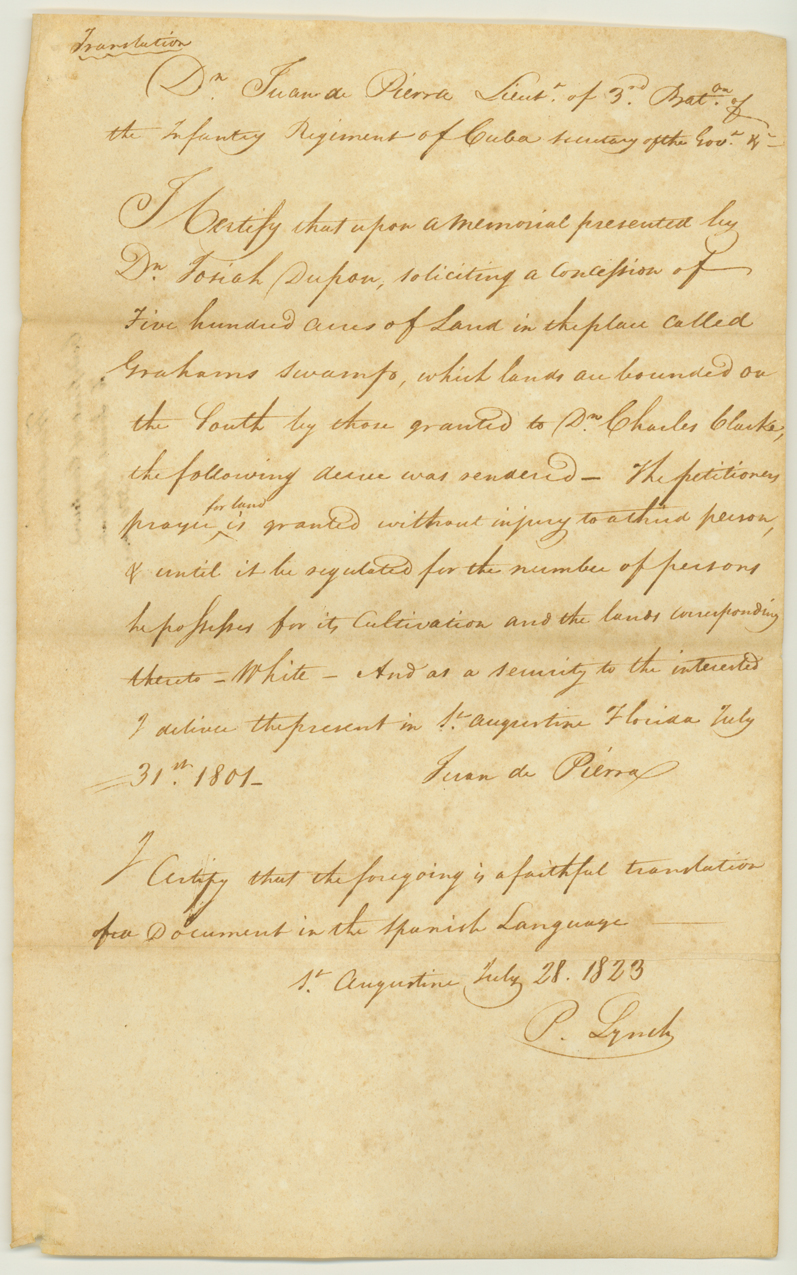 Translation
Dn. Juan de Pierra Lieut. of 3rd. Bat.on of
the Infantry Regiment of Cuba secretary of the Gov.t &c
I Certify that upon a memorial presented by
Dn. Josiah Dupon, soliciting a Concession of
Five hundred acres of Land in the place called
Grahams swamp, which lands are bounded on
the South by those granted to Dn. Charles Clarke,
the following decree was rendered – The petitioners
prayer for land is granted without injury to a third person,
& until it be regulated for the number of persons
he possesses for its Cultivation and the lands corresponding
thereto – White – And as a security to the interested
I deliver the present in St. Augustine Florida July
31st. 1801 – Juan de Pierra
I Certify that the foregoing is a faithful translation
of a Document in the Spanish Language
St. Augustine July 28. 1823
P. Lynch